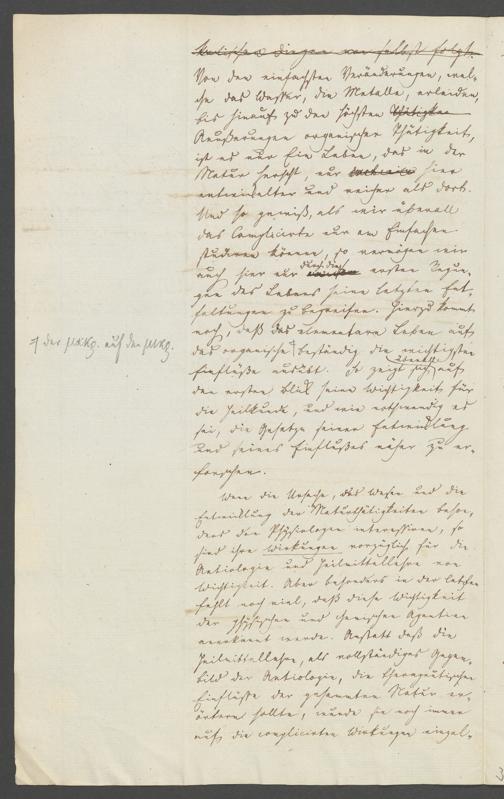 Von den einfachsten Veränderungen, wel-
che das Wasser, die Metalle, erleiden,
bis hinauf zu den höchsten Thätigkei
Äußerungen organischer Thätigkeit,
ist es nur Ein Leben, das in der
Natur herscht, nur hier
entwickelter und reicher als dort.
Und so gewiß, als wir überall
das Complicirte nur am Einfachen
studieren können, so vermögen wir
auch hier nur durch die ersten Regun-
gen des Lebens seine letzten Ent-
faltungen zu begreifen. Hierzu kommt
noch, daß das elementare Leben auf
das organische beständig die wichtigsten
Einflüße ausübt. So zeigt sich auf
den ersten Blick seine Wichtigkeit für
die Heilkunde, und wie nothwendig es
sei, die Gesetze seiner Entwicklung
und seines Einflußes näher zu er-
forschen.
Wenn die Ursache, das Wesen und die
Entwicklung der Naturthätigkeiten beson-
ders den Physiologen interessiren, so
sind ihre Wirkungen vorzüglich für die
Aetiologie und Heilmittellehre von
Wichtigkeit. Aber besonders in der letzten
fehlt noch viel, daß diese Wichtigkeit
der physischen und chemischen Agentien
anerkannt werde. Anstatt daß die
Heilmittellehre, als vollständiges Gegen-
bild der Aetiologie, die therapeutischen
Einflüße der gesammten Natur er-
örtern sollte, wurde sie noch immer
auf die complicirten Wirkungen einzel-